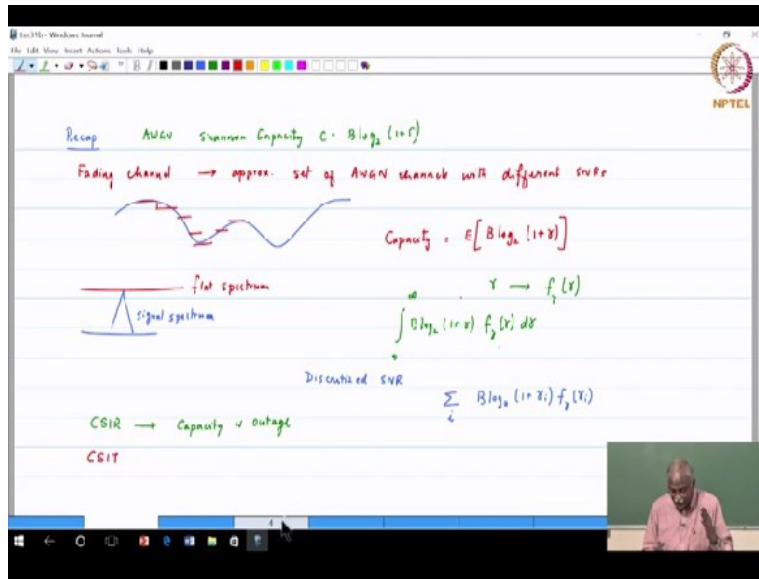 Lec31b - Windows Journal
File Edit View Insert Actions Tools Help
NPTEL
Recap AWGN Shannon Capacity C = B log₂ (1+Γ)
Fading channel → approx. set of AWGN channels with different SNRs
Capacity = E[B log₂ (1+γ)]
flat spectrum
γ → f_γ(γ)
signal spectrum
∫₀^∞ B log₂ (1+γ) f_γ(γ) dγ
Discretized SNR
∑_i B log₂ (1+γ_i) f_γ(γ_i)
CSIR → Capacity v outage
CSIT
4